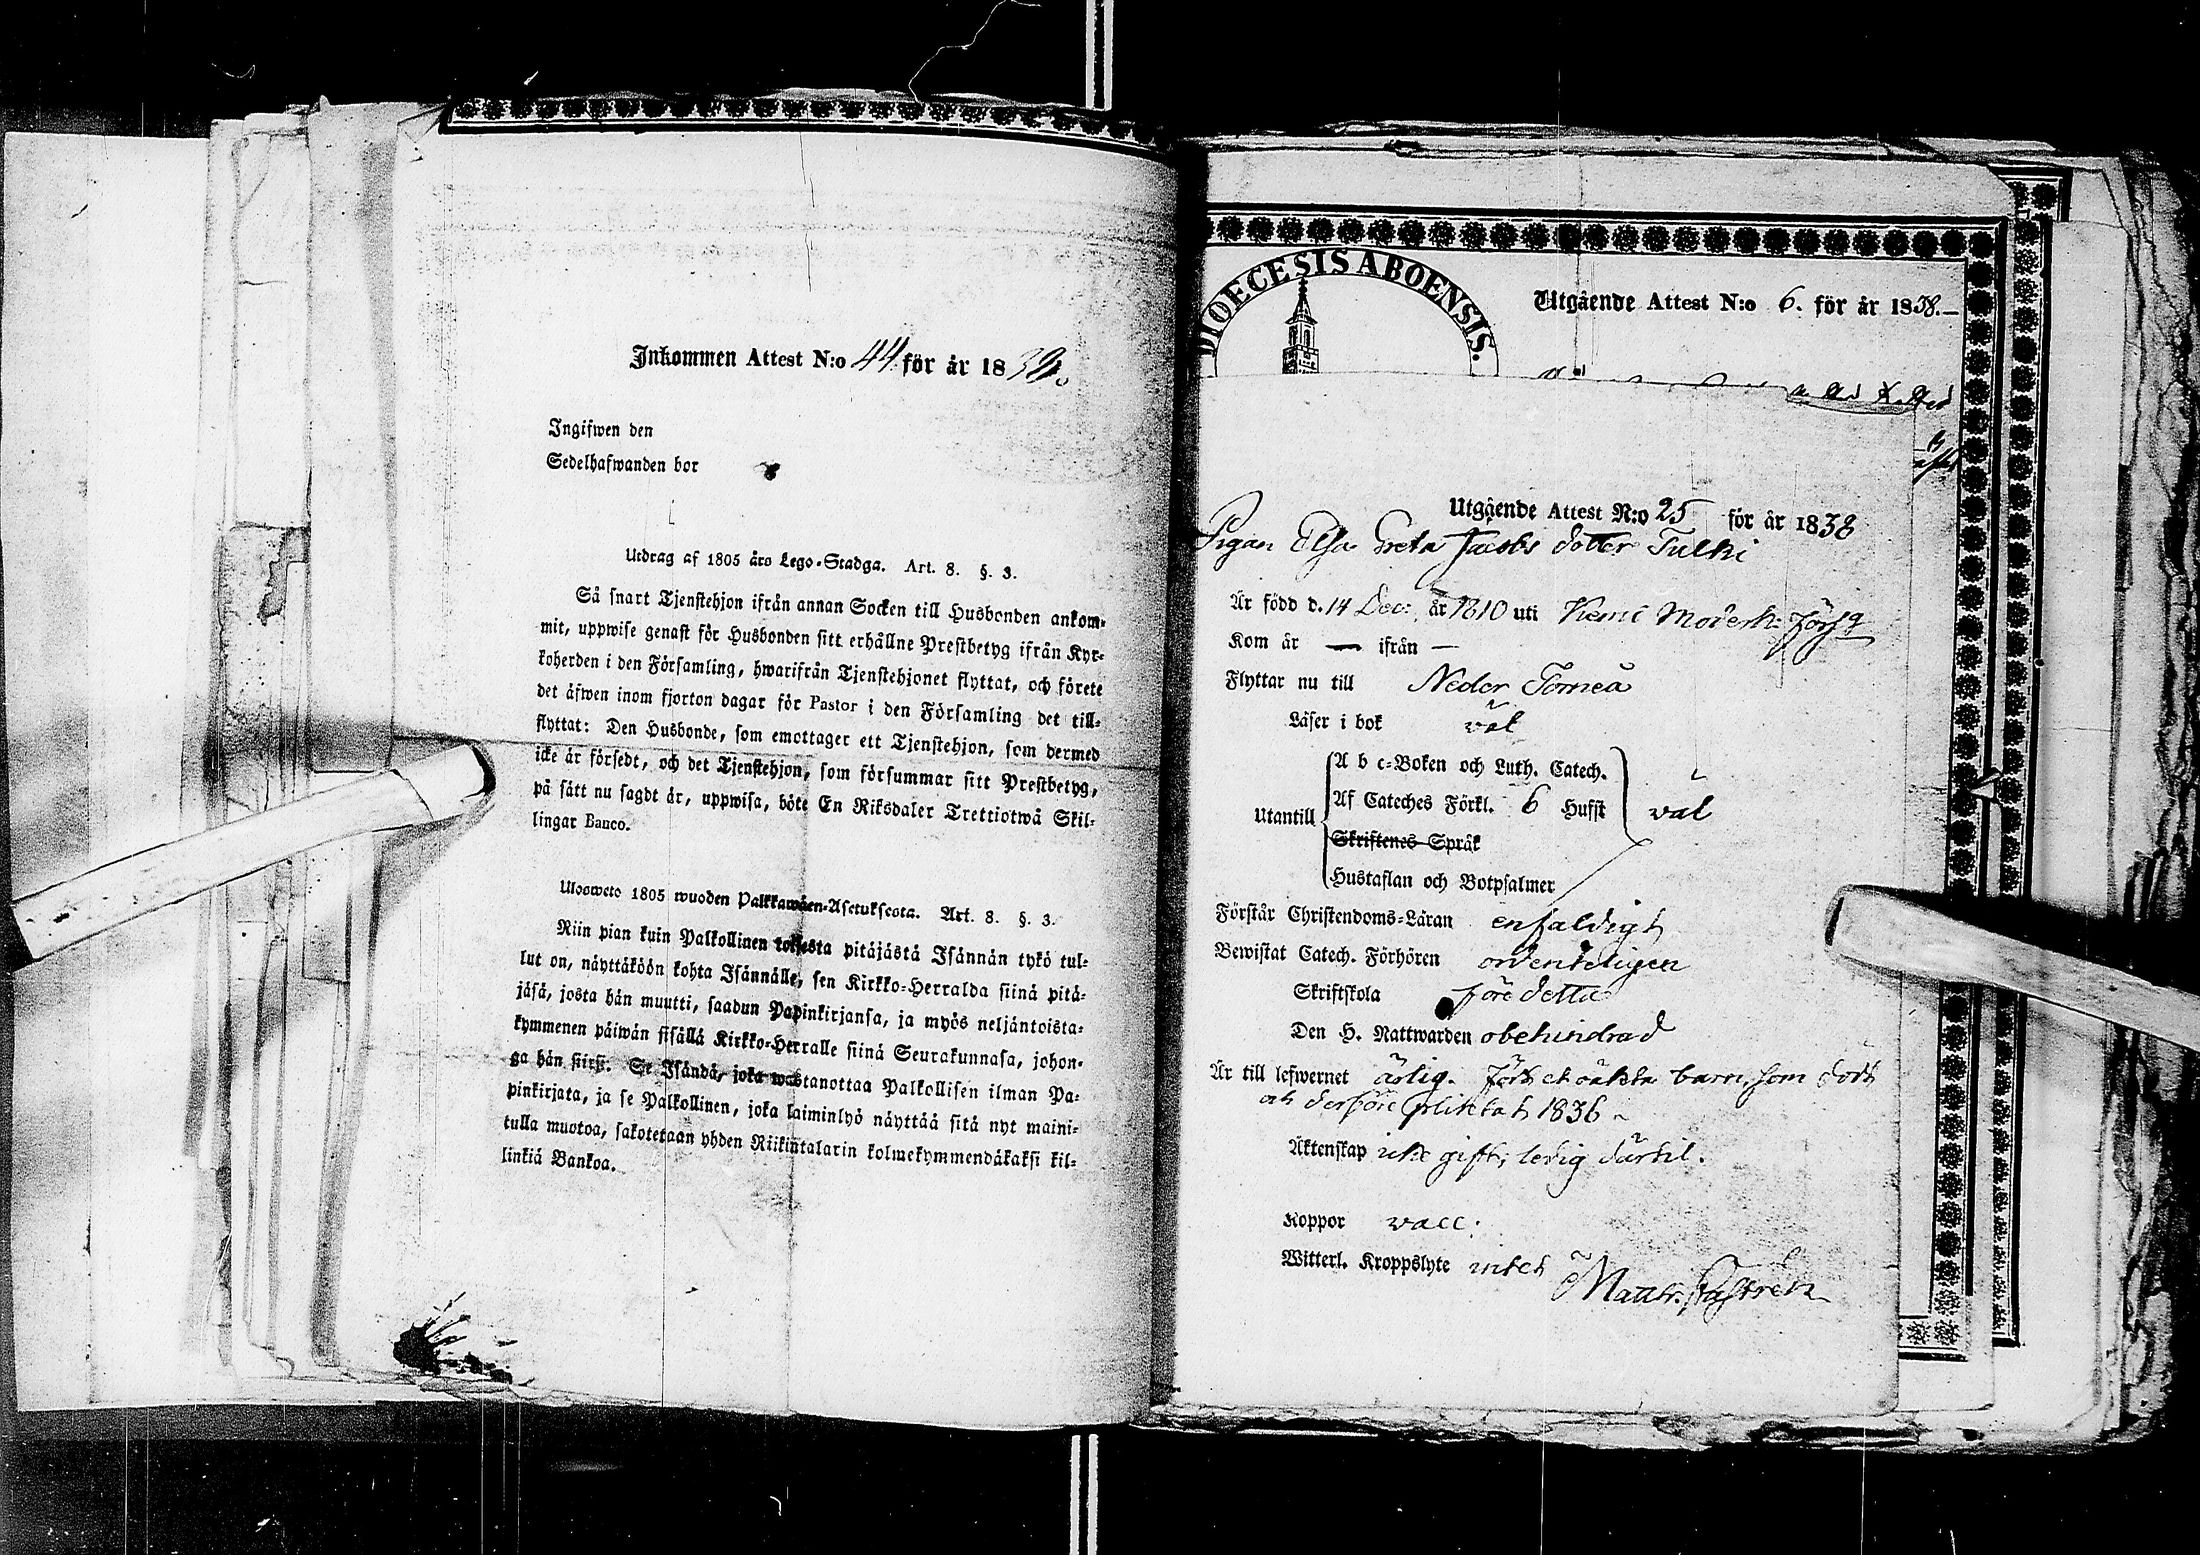 Inkommen Attest N:o 44 för år 1838.
Ingifwen den
Sedelhafwanden bor
Utdrag af 1805 års Lego-Stadga. Art. 8. §. 3.
Så snart Tjenstehjon ifrån annan Socken till Husbonden ankom-
mit, uppwise genast för Husbonden sitt erhållne Prestbetyg ifrån Kyr-
koherden i den Församling, hwarifrån Tjenstehjonet flyttat, och förete
det äfwen inom fjorton dagar för Pastor i den Församling det till-
flyttat: Den Husbonde, som emottager ett Tjenstehjon, som dermed
icke är försedt, och det Tjenstehjon, som försummar sitt Prestbetyg,
på sätt nu sagdt är, uppwisa, böte En Riksdaler Trettiotwå Skil-
lingar Banco.
Ulosweto 1805 wuoden Palkkawäen-Asetuksesta. Art. 8. §. 3.
Niin pian kuin Palkollinen toisesta pitäjästä Isännän tykö tul-
lut on, näyttäköön kohta Isännälle, sen Kirkko-Herralda siinä pitä-
jäsä, josta hän muutti, saadun Papinkirjansa, ja myös neljäntoista-
kymmenen päiwän sisällä Kirkko-Herralle siinä Seurakunnasa, johon-
ga hän siirsi: Se Isändä, joka wastanottaa Palkollisen ilman Pa-
pinkirjata, ja se Palkollinen, joka laiminlyö näyttää sitä nyt maini-
tulla muotoa, sakotetaan yhden Riikintalarin kolmekymmendäkaksi kil-
linkiä Bankoa.
DIOECESIS ABOENSIS.
Utgående Attest N:o 6. för år 1838.
Utgående Attest N:o 25 för år 1838
Pigan Elsa Greta Jacobs dotter Tulki
Är född d. 14 Dec: år 1810 uti Kemi Moderk: Förs:g
Kom år — ifrån —
Flyttar nu till Neder Torneå
Läser i bok väl
A b c-Boken och Luth. Catech.
Af Cateches Förkl. 6 Hufst
Utantill väl
Skriftenes Språk
Hustaflan och Botpsalmer
Förstår Christendoms-Läran enfaldigt
Bewistat Catech. Förhören ordenteligen
Skriftskola före detta
Den H. Nattwarden obehindrad
Är till lefwernet ärlig. Födt et oäkta barn, som dödt
och derföre pliktat 1836
Äktenskap icke gift, ledig därtil.
Koppor vacc:
Witterl. Kroppslyte intet
Matth. Castrén